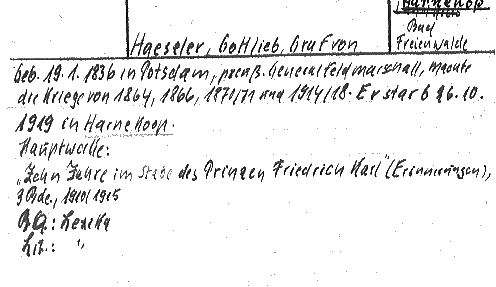 Harnekop
Bad
Freienwalde
Haeseler, Gottlieb, Graf von
Geb. 19.1.1836 in Potsdam, preuß. Generalfeldmarschall, machte
die Kriege von 1864, 1866, 1870/71 und 1914/18. Er starb 26.10.
1919 in Harnekop.
Hauptwerke:
"Zehn Jahre im Stabe des Prinzen Friedrich Karl" (Erinnerungen),
3 Bde., 1910/1915
BQ: Lexika
Lit.: "